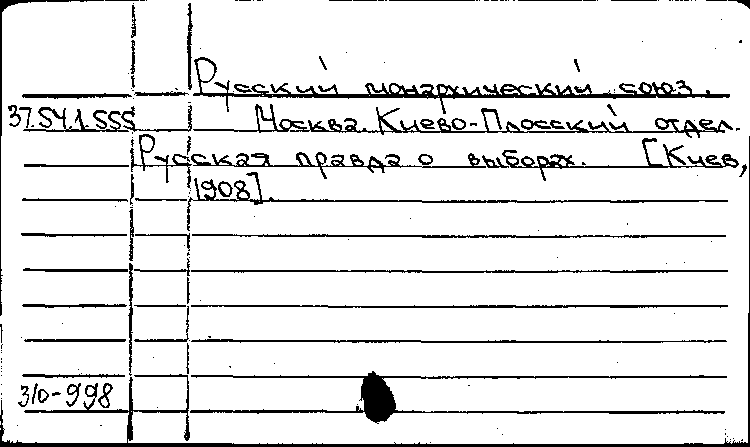 Русский монархический союз.
37.54.1.555 Москва. Киево-Плосский отдел.
Русская правда о выборах. [Киев,
1908].
310-998